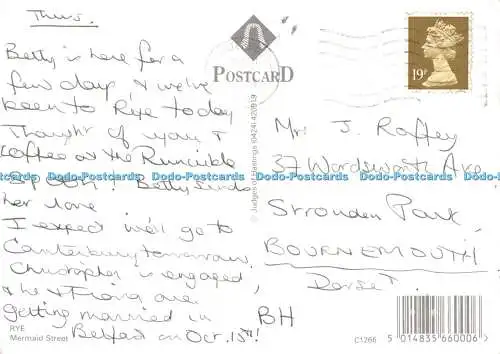 Thurs.
Betty is here for a
few days & we've
been to Rye today
Thought of you &
coffee at the Runcible
Spoon! Betty sends
her love
I expect we'll go to
Canterbury tomorrow.
Christopher is engaged
& he & Fiona are
getting married in
Belfast on Oct. 15th!
BH
RYE
Mermaid Street
POSTCARD
© Judges of Hastings (0424) 420919
19P
Mr J. Roffey
37 Wordsworth Ave
Strouden Park,
BOURNEMOUTH,
Dorset.
C1266
5 014835 660006
Dodo-Postcards Dodo-Postcards Dodo-Postcards Dodo-Postcards Dodo-Postcards Dodo-Postcards
Dodo-Postcards Dodo-Postcards Dodo-Postcards Dodo-Postcards Dodo-Postcards Dodo-Postcards